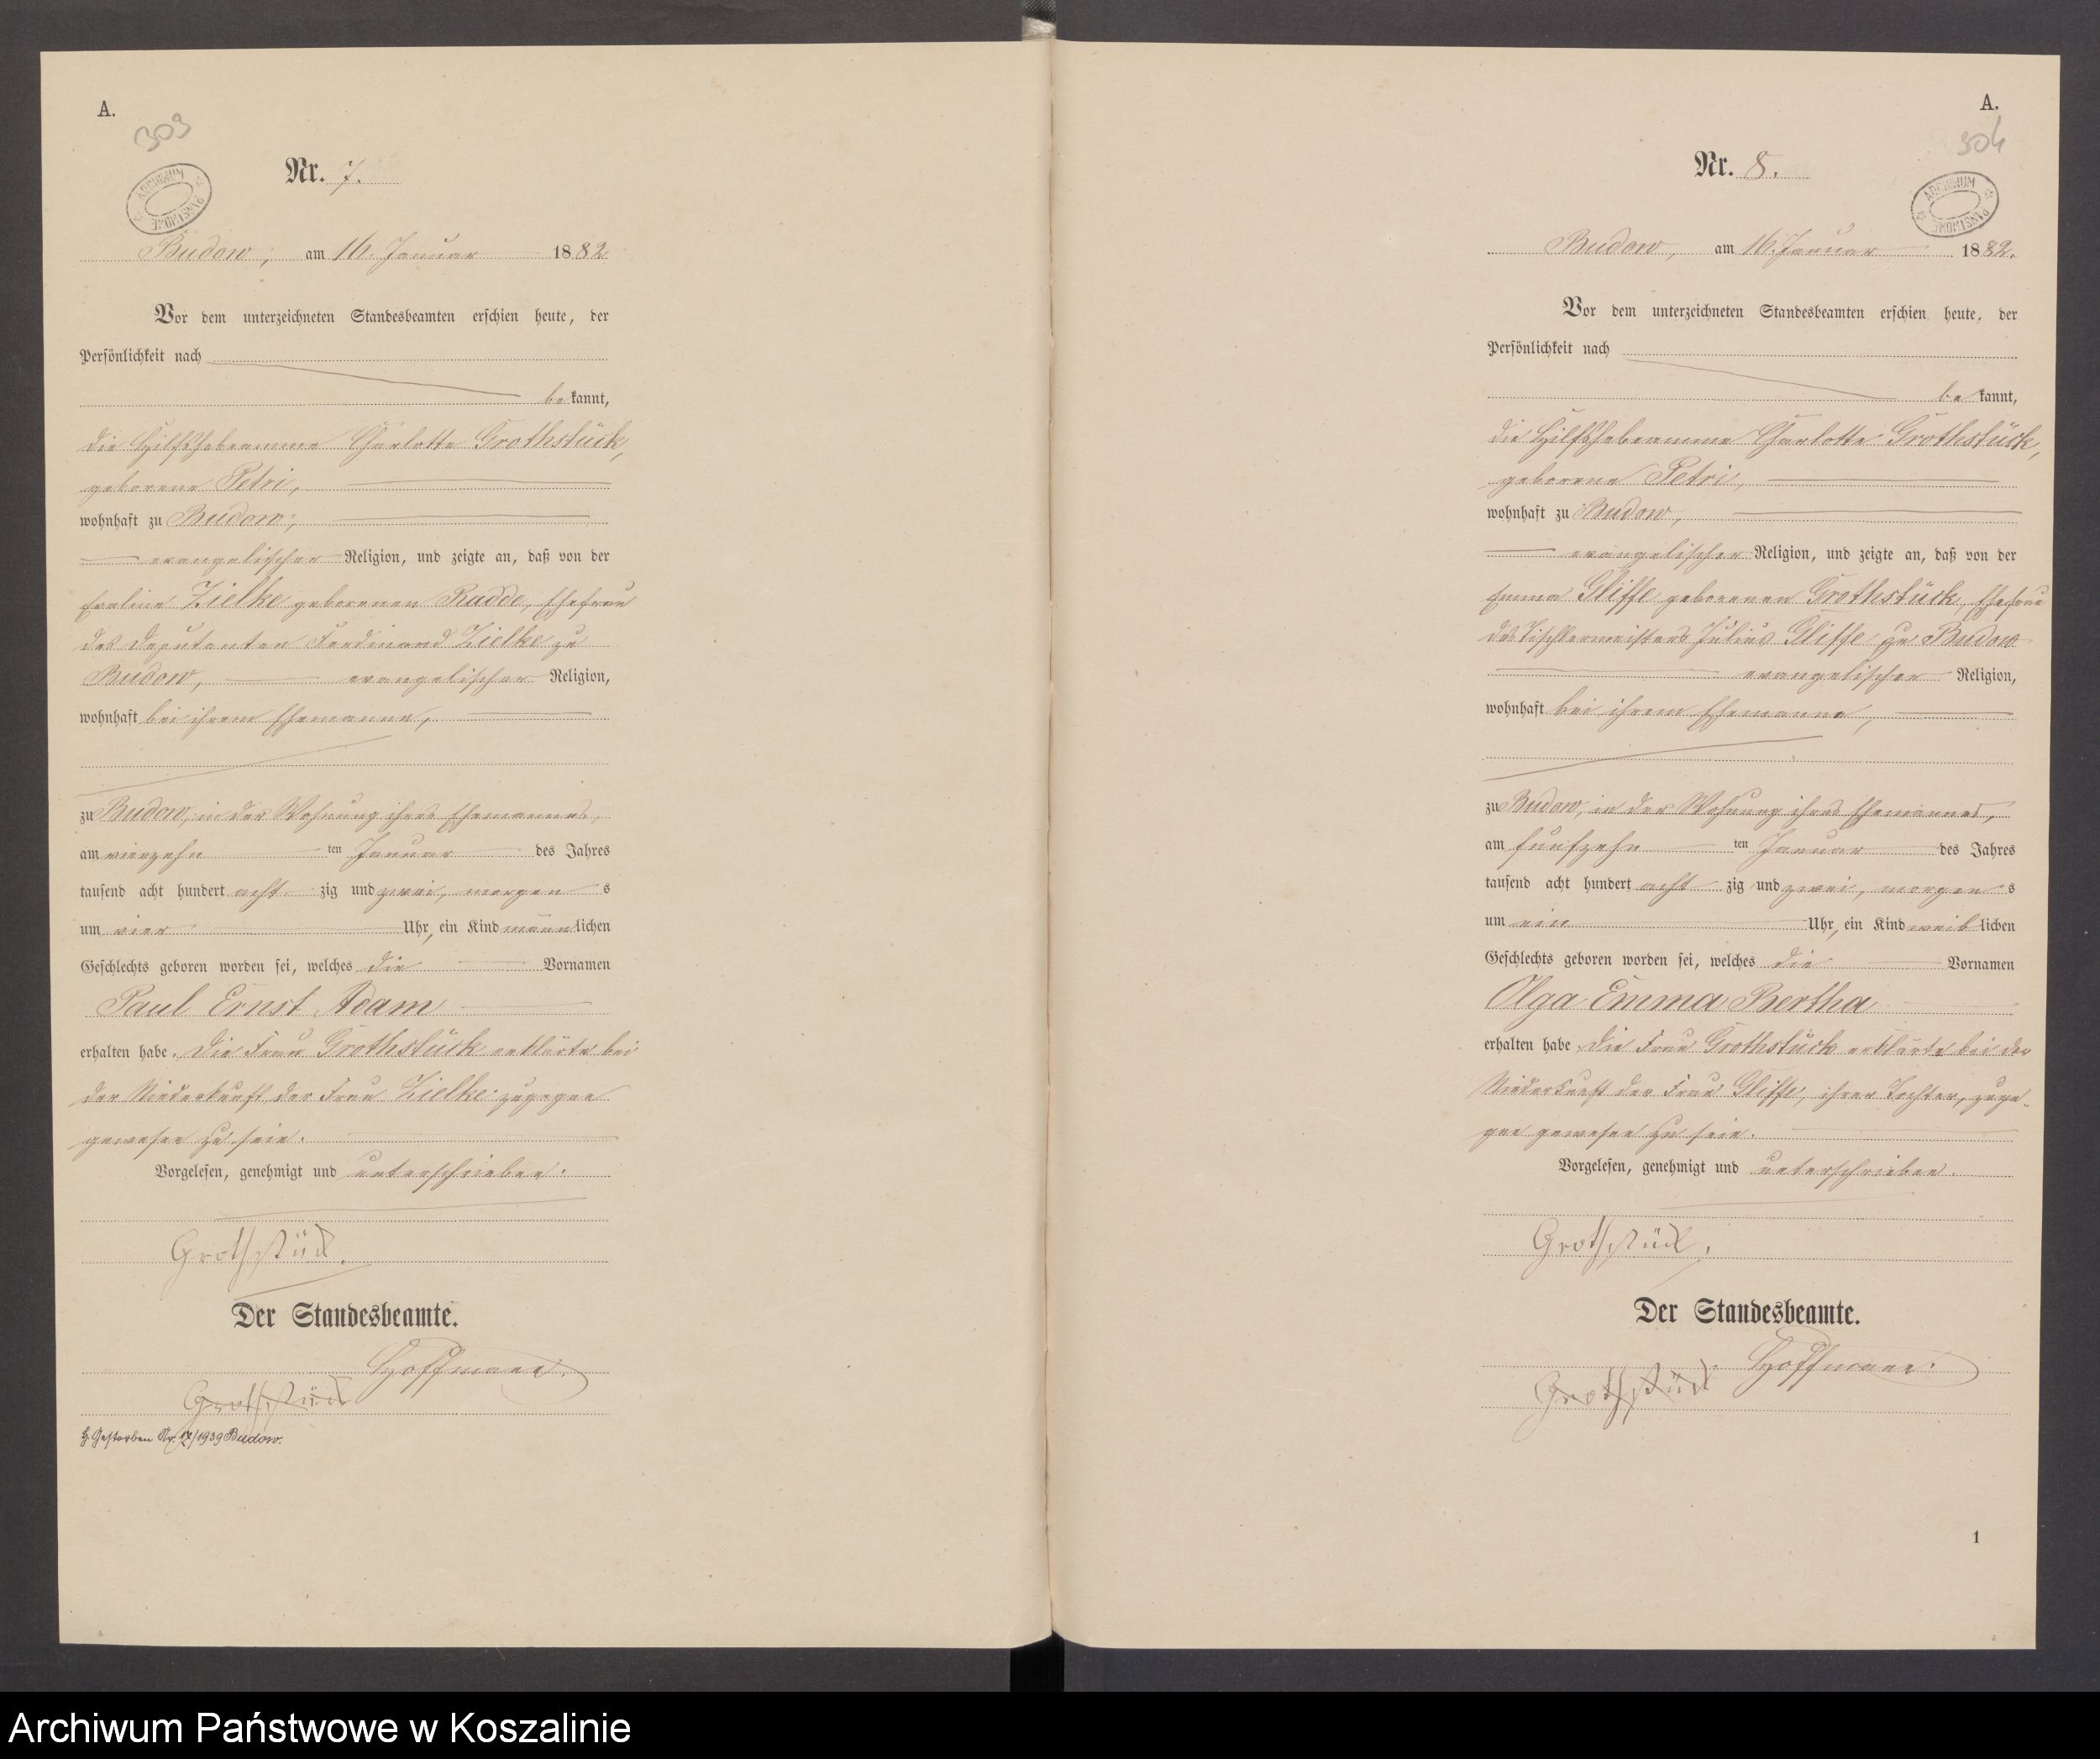 A.
303
ARCHIWUM PAŃSTWOWE
Nr. 7.
Budow, am 16. Januar 1882
Vor dem unterzeichneten Standesbeamten erschien heute, der
Persönlichkeit nach
bekannt,
die Hilfshebeamme Charlotte Grothstück,
geborene Petri,
wohnhaft zu Budow,
evangelischer Religion, und zeigte an, daß von der
Zielke geborenen Radde, Ehefrau
des Deputanten Ferdinand Zielke zu
Budow, evangelischer Religion,
wohnhaft bei ihrem Ehemanne,
zu Budow, in der Wohnung ihres Ehemannes,
am vierzehnten Januar des Jahres
tausend acht hundert achtzig und zwei, morgens
um vier Uhr, ein Kind männlichen
Geschlechts geboren worden sei, welches die Vornamen
Paul Ernst Adam
erhalten habe. Die Frau Grothstück erklärte bei
der Niederkunft der Frau Zielke zugegen
gewesen zu sein.
Vorgelesen, genehmigt und unterschrieben.
Grothstück.
Der Standesbeamte.
Hoffmann.
Grothstück
Gestorben Nr. /1939 Budow.
A.
304
ARCHIWUM PAŃSTWOWE
Nr. 8.
Budow, am 16. Januar 1882.
Vor dem unterzeichneten Standesbeamten erschien heute, der
Persönlichkeit nach
bekannt,
die Hilfshebeamme Charlotte Grothstück,
geborene Petri,
wohnhaft zu Budow,
evangelischer Religion, und zeigte an, daß von der
Emma Gliffe geborenen Grothstück, Ehefrau
des Tischlermeisters Julius Gliffe zu Budow
evangelischer Religion,
wohnhaft bei ihrem Ehemanne,
zu Budow, in der Wohnung ihres Ehemannes,
am fünfzehnten Januar des Jahres
tausend acht hundert achtzig und zwei, morgens
um ein Uhr, ein Kind weiblichen
Geschlechts geboren worden sei, welches die Vornamen
Olga Emma Bertha
erhalten habe. Die Frau Grothstück erklärte bei der
Niederkunft der Frau Gliffe, ihrer Tochter, zuge-
gen gewesen zu sein.
Vorgelesen, genehmigt und unterschrieben.
Grothstück.
Der Standesbeamte.
Hoffmann.
Grothstück
1
Archiwum Państwowe w Koszalinie